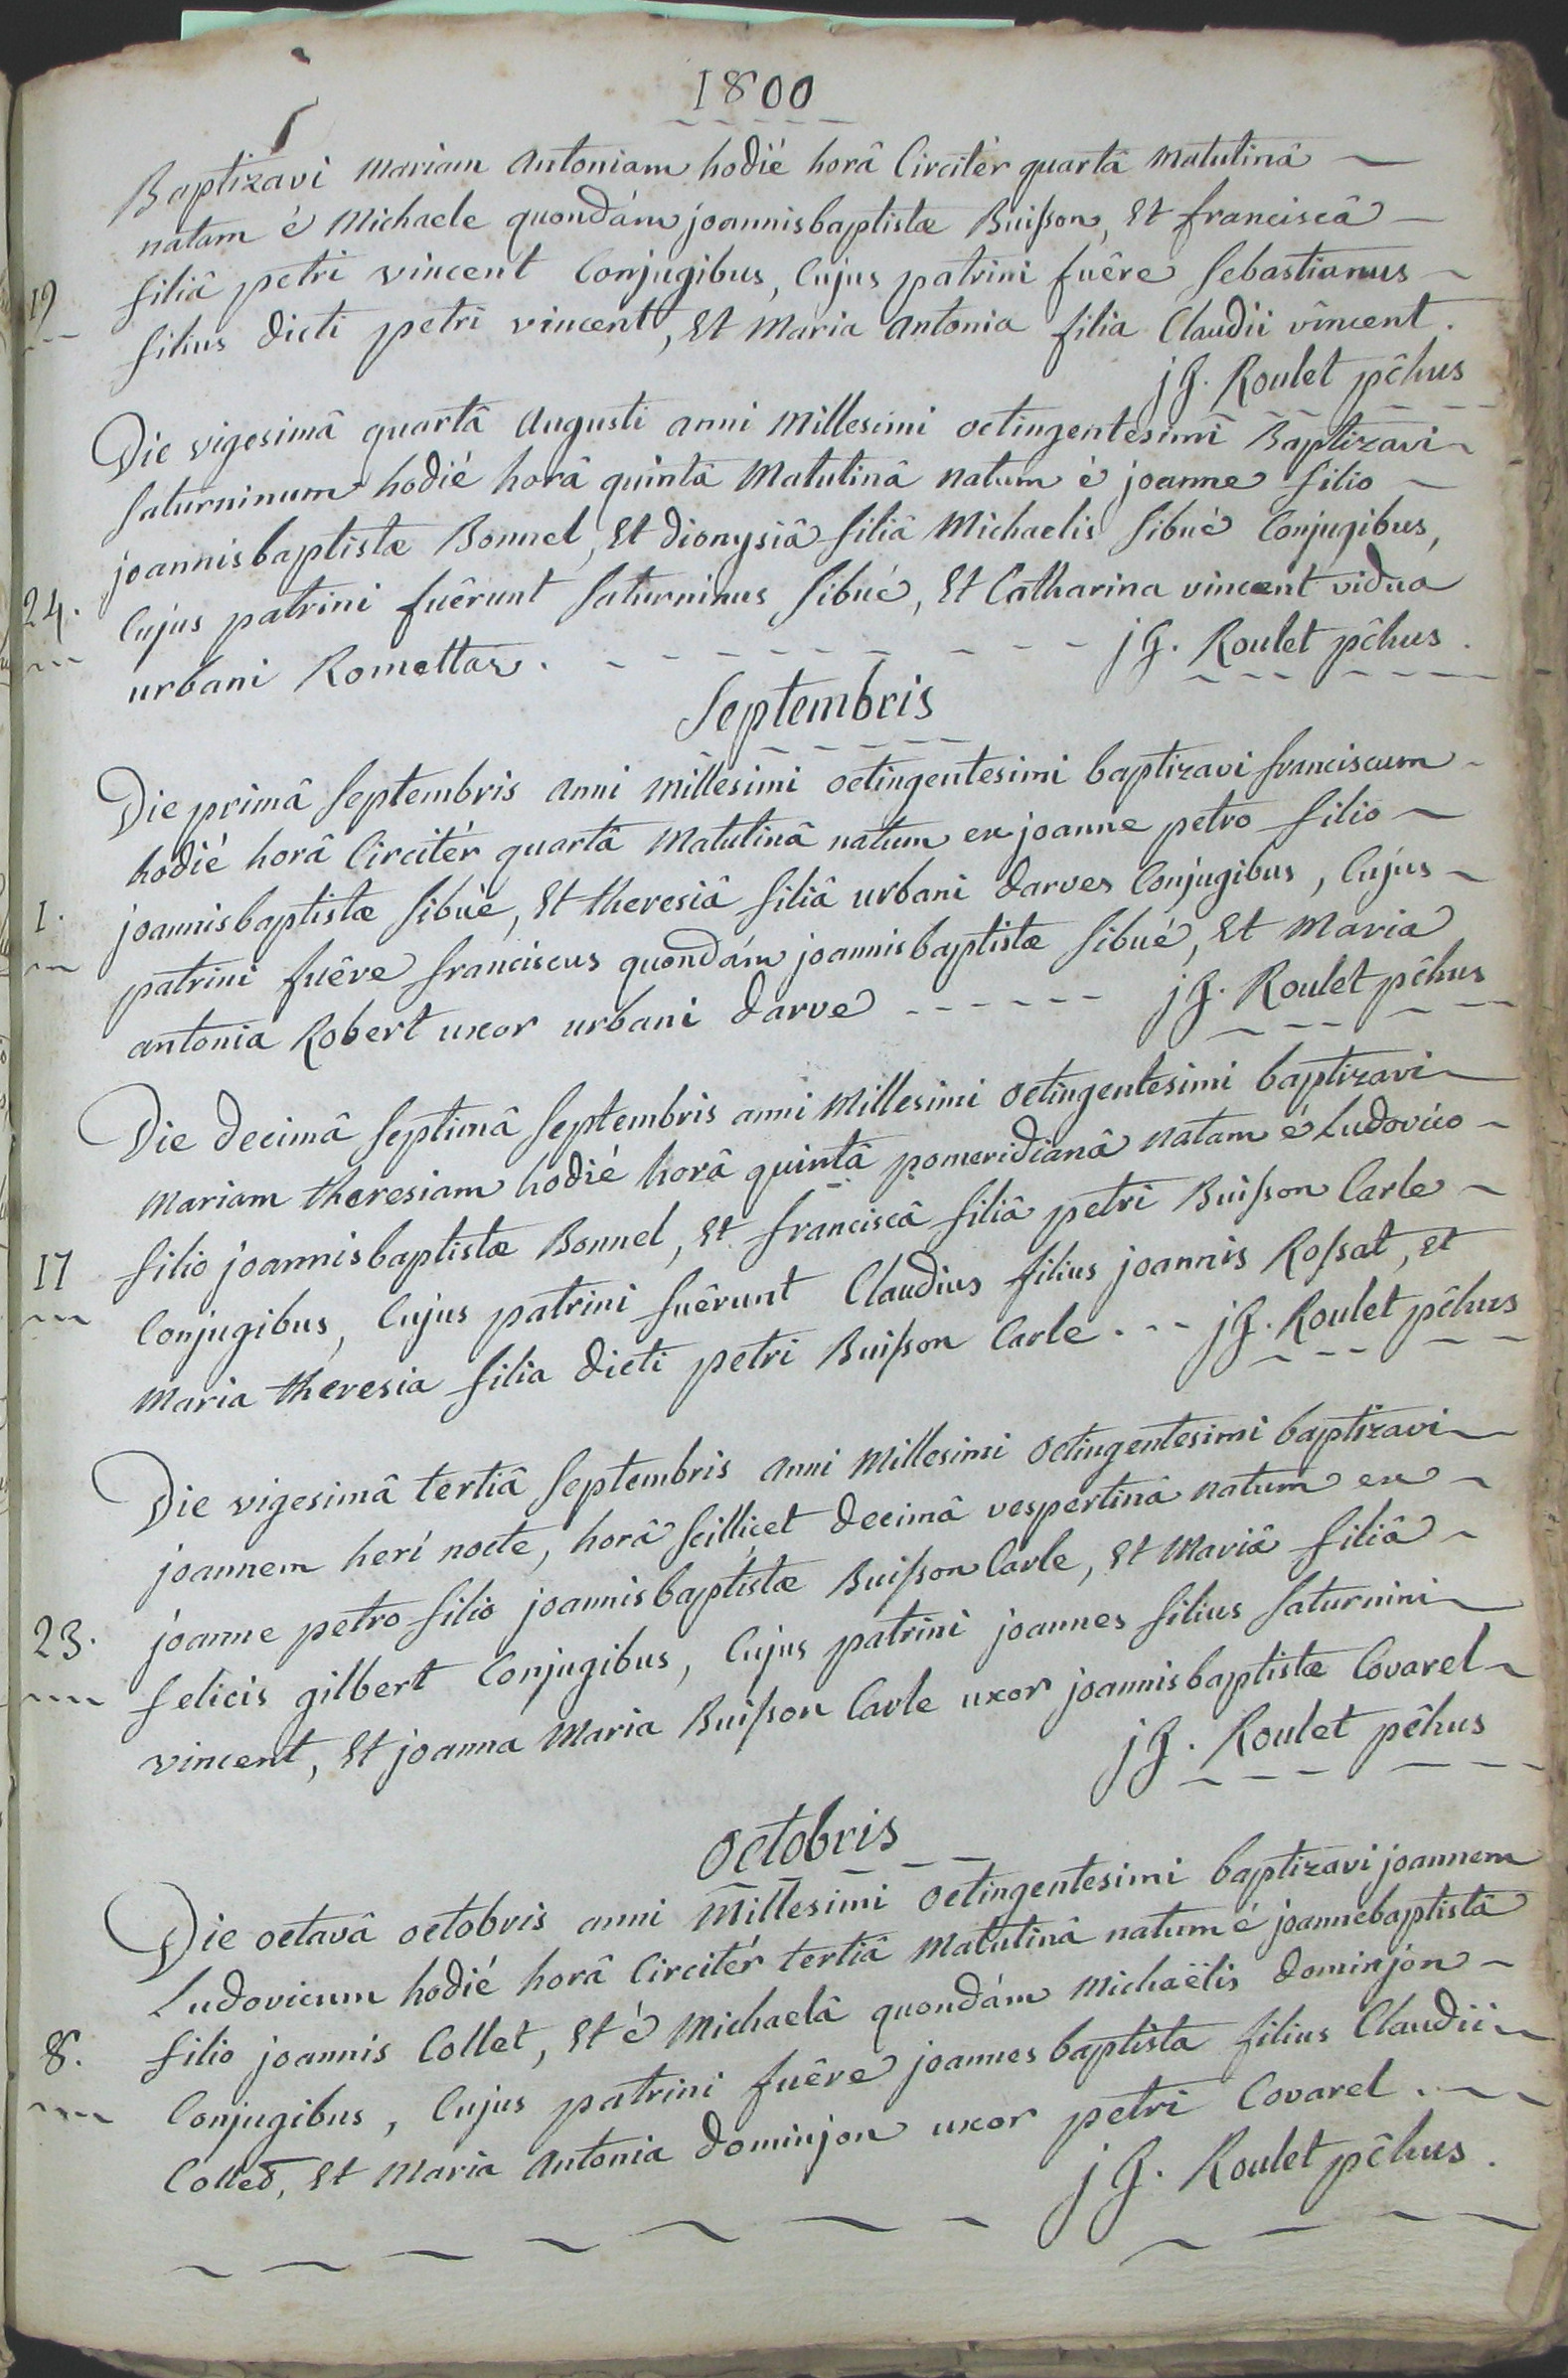 1800
Baptizavi Mariam Antoniam hodié horâ Circitér quartâ Matutinâ
natam é Michaele quondám joannisbaptistæ Buisson, Et franciscâ
19 filiâ petri vincent Conjugibus, Cujus patrini fuêre Sebastianus
filius dicti petri vincent, Et Maria Antonia filia Claudii vincent.
jG. Roulet pêhus
Die vigesimâ quartâ Augusti anni Millesimi octingentesimi Baptizavi
Saturninum hodié horâ quintâ Matutinâ natum é joanne filio
joannisbaptistæ Bonnel, Et dionysiâ filiâ Michaelis Sibué Conjugibus,
24. Cujus patrini fuêrunt Saturninus Sibué, Et Catharina vincent vidua
urbani Romettaz. jG. Roulet pêhus.
Septembris
Die primâ Septembris anni millesimi octingentesimi baptizavi franciscum
hodié horâ Circitér quartâ Matutinâ natum ex joanne petro filio
1. joannisbaptistæ Sibué, Et theresiâ filiâ urbani darves Conjugibus, Cujus
patrini fuêre franciscus quondám joannisbaptistæ Sibué, Et Maria
antonia Robert uxor urbani darve jG. Roulet pêhus
Die decimâ Septimâ Septembris anni Millesimi octingentesimi baptizavi
Mariam theresiam hodié horâ quintâ pomeridianâ natam é Ludovico
17 filio joannisbaptistæ Bonnel, Et franciscâ filiâ petri Buisson Carle
Conjugibus, Cujus patrini fuêrunt Claudius filius joannis Rossat, Et
Maria theresia filia dicti petri Buisson Carle. jG. Roulet pêhus
Die vigesimâ tertiâ Septembris anni Millesimi octingentesimi baptizavi
joannem heri nocte, horâ Scillicet decimâ vespertinâ natum ex
joanne petro filio joannisbaptistæ Buisson Carle, Et Mariâ filiâ
23. felicis gilbert Conjugibus, Cujus patrini joannes filius Saturnini
vincent, Et joanna Maria Buisson Carle uxor joannisbaptistæ Covarel
jG. Roulet pêhus
Octobris
Die octavâ octobris anni Millesimi octingentesimi baptizavi joannem
Ludovicum hodié horâ Circitér tertiâ Matutinâ natum é joannebaptistâ
8. filio joannis Collet, Et é Michaelâ quondám Michaëlis dominjon
Conjugibus, Cujus patrini fuêre joannes baptista filius Claudii
Collet, Et Maria Antonia dominjon uxor petri Covarel.
jG. Roulet pêhus.